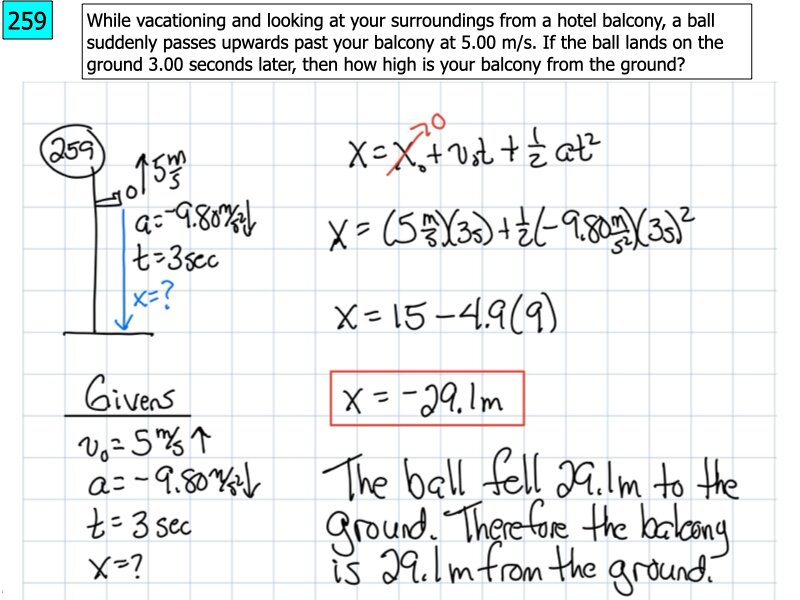 259
While vacationing and looking at your surroundings from a hotel balcony, a ball
suddenly passes upwards past your balcony at 5.00 m/s. If the ball lands on the
ground 3.00 seconds later, then how high is your balcony from the ground?
259
↑5 m/s
a=-9.80 m/s²↓
t=3sec
x=?
Givens
v₀=5 m/s ↑
a=-9.80 m/s²↓
t=3 sec
x=?
x=x₀+v₀t+½at²
0
x=(5 m/s)(3s)+½(-9.80 m/s²)(3s)²
x=15-4.9(9)
x=-29.1m
The ball fell 29.1m to the
ground. Therefore the balcony
is 29.1m from the ground.